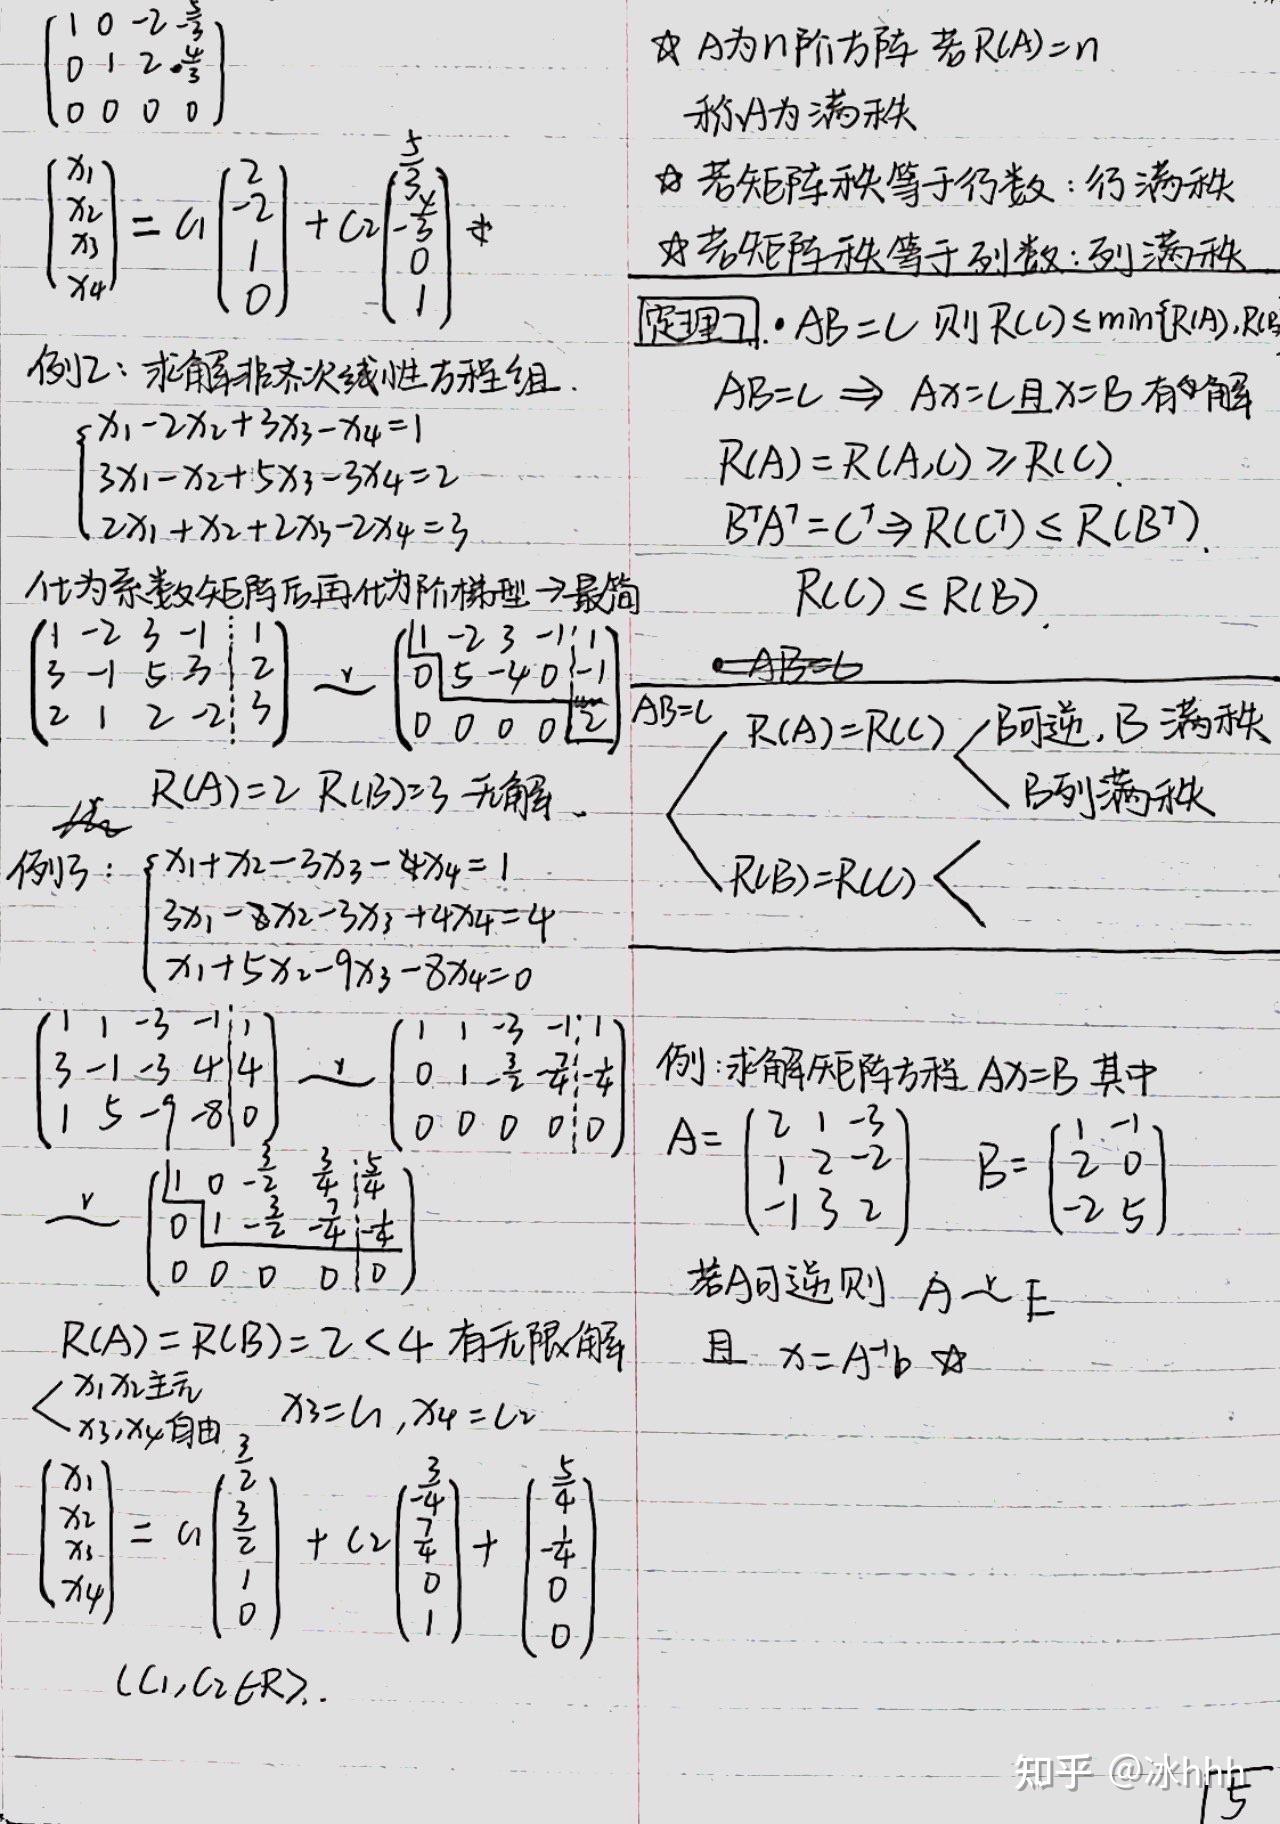 (1 0 -2 -5/3
0 1 2 4/3
0 0 0 0)
(x1 x2 x3 x4) = C1 (2 -2 1 0) + C2 (5/3 -4/3 0 1)
例2: 求解非齐次线性方程组.
x1-2x2+3x3-x4=1
3x1-x2+5x3-3x4=2
2x1+x2+2x3-2x4=3
化为系数矩阵后再化为阶梯型→最简
(1 -2 3 -1 1
3 -1 5 3 2
2 1 2 -2 3) ~r (1 -2 3 -1 1
0 5 -4 0 -1
0 0 0 0 2)
R(A)=2 R(B)=3 无解.
例3:
x1+x2-3x3-4x4=1
3x1-x2-3x3+4x4=4
x1+5x2-9x3-8x4=0
(1 1 -3 -1 1
3 -1 -3 4 4
1 5 -9 -8 0) ~r (1 1 -3 -1 1
0 1 -3/2 -7/4 -1/4
0 0 0 0 0)
~r (1 0 -3/2 3/4 5/4
0 1 -3/2 -7/4 -1/4
0 0 0 0 0)
R(A)=R(B)=2<4 有无限解
x1 x2主元
x3,x4自由 x3=C1,x4=C2
(x1 x2 x3 x4) = C1 (3/2 3/2 1 0) + C2 (-3/4 7/4 0 1) + (5/4 -1/4 0 0)
(C1,C2∈R).
☆ A为n阶方阵 若R(A)=n
称A为满秩
☆ 若矩阵秩等于行数:行满秩
☆ 若矩阵秩等于列数:列满秩
定理7 • AB=C 则R(C)≤min{R(A),R(B
AB=C ⇒ AX=C且X=B 有解
R(A)=R(A,C)≥R(C).
BᵀAᵀ=Cᵀ⇒R(Cᵀ)≤R(Bᵀ).
R(C)≤R(B).
AB=C
R(A)=R(C)
B可逆,B满秩
B列满秩
R(B)=R(C)
例:求解矩阵方程 AX=B 其中
A= (2 1 -3
1 2 -2
-1 3 2) B= (1 -1
2 0
-2 5)
若A可逆则 A ~r E
且 x=A⁻¹b ☆
知乎 @冰hhh
15